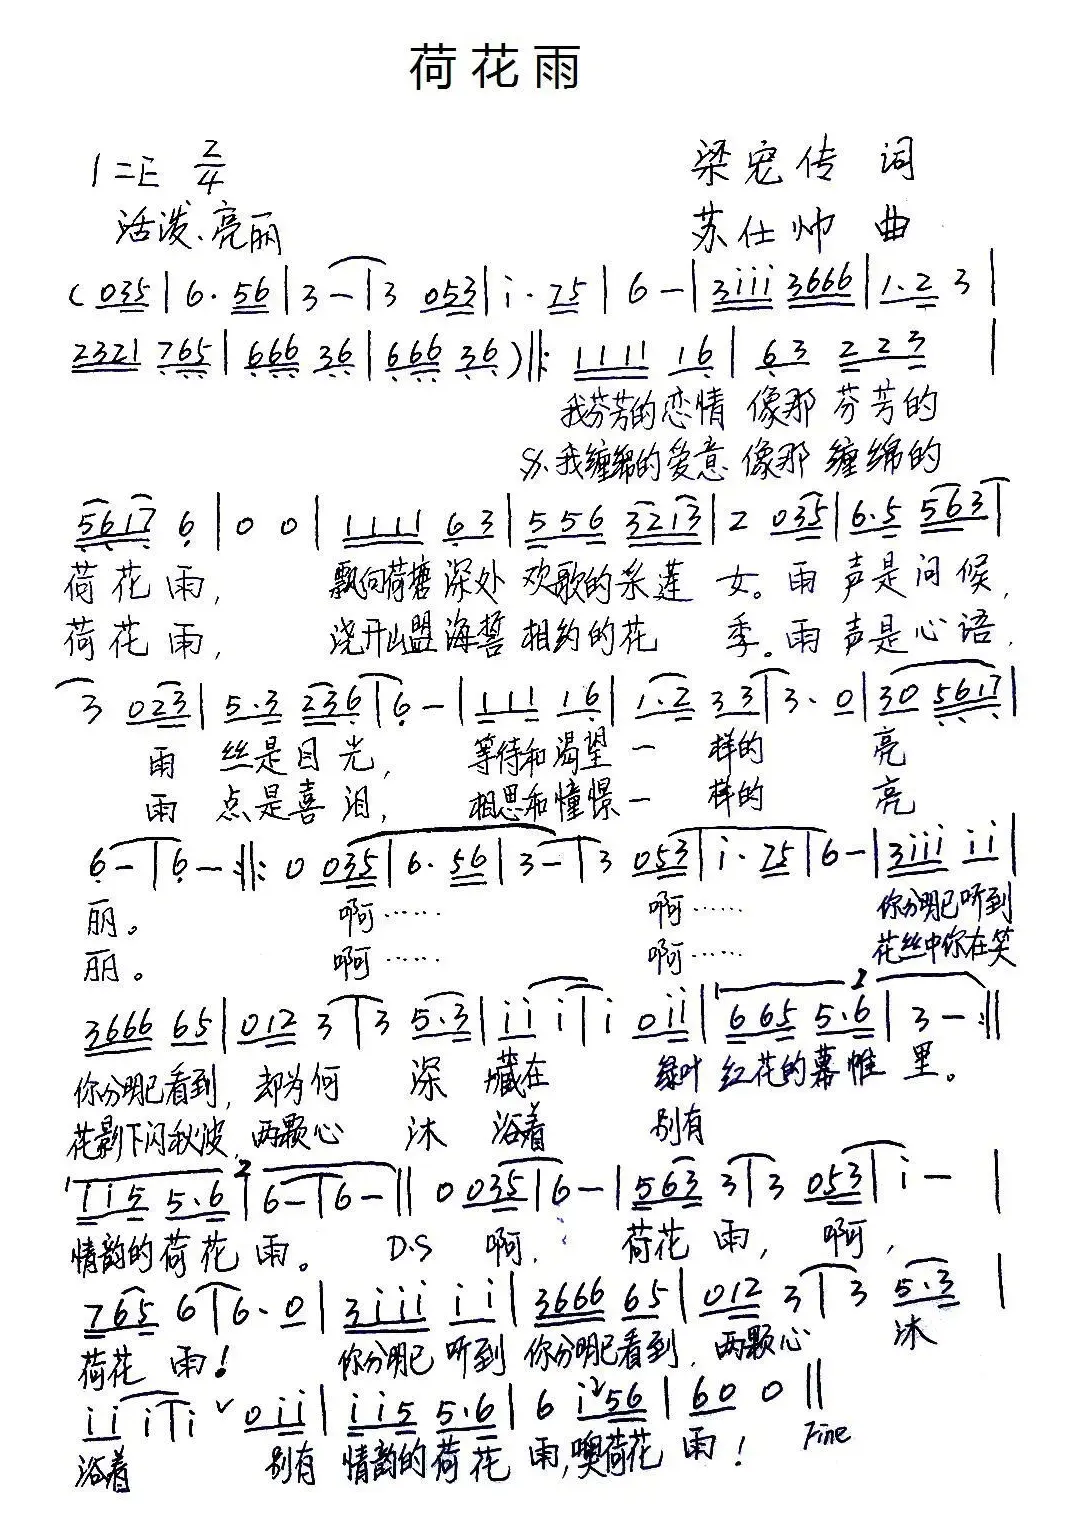 荷花雨
1=E 2/4
梁宏传 词
活泼、亮丽
苏仕帅 曲
( 035 | 6· 56 | 3 - | 3 053 | i · 75 | 6 - | 3iii 3666 | 1·2 3 |
2321 765 | 666 36 | 666 36 ) ‖: 1111 16 | 63 223 |
我芬芳的恋情 像那 芬芳的
𝄋 我缠绵的爱意 像那 缠绵的
5617 6 | 0 0 | 1111 63 | 556 3213 | 2 035 | 6·5 563 |
荷花雨, 飘向荷塘深处 欢歌的采莲 女。雨 声是问候,
荷花雨, 浇开山盟海誓 相约的花 季。雨 声是心语,
3 023 | 5·3 236 | 6 - | 111 16 | 1·2 33 | 3· 0 | 30 5617 |
雨 丝是目光, 等待和渴望 一 样的 亮
雨 点是喜泪, 相思和憧憬 一 样的 亮
6 - | 6 - :‖: 0 035 | 6· 56 | 3 - | 3 053 | i · 75 | 6 - | 3iii ii |
丽。 啊…… 啊…… 你分明已听到
丽。 啊…… 啊…… 花丝中你在笑
3666 65 | 012 3 | 3 5·3 | ii i | i 0ii | 1 665 5·6 2 | 3 - :‖
你分明已看到, 却为何 深 藏在 绿叶 红花的幕帷 里。
花影下闪秋波, 两颗心 沐 浴着 别有
1 ii5 5·6 2 | 6 - | 6 - ‖ 0 035 | 6 - | 563 3 | 3 053 | i - |
情韵的荷花雨。 D.S 啊, 荷花 雨, 啊,
765 6 | 6· 0 | 3iii ii | 3666 65 | 012 3 | 3 5·3 |
荷花 雨! 你分明已 听到 你分明已看到, 两颗心 沐
ii i | i ˅ 0ii | ii5 5·6 | 6 i ˅ 56 | 60 0 ‖
浴着 别有 情韵的荷花 雨,噢荷花 雨! Fine